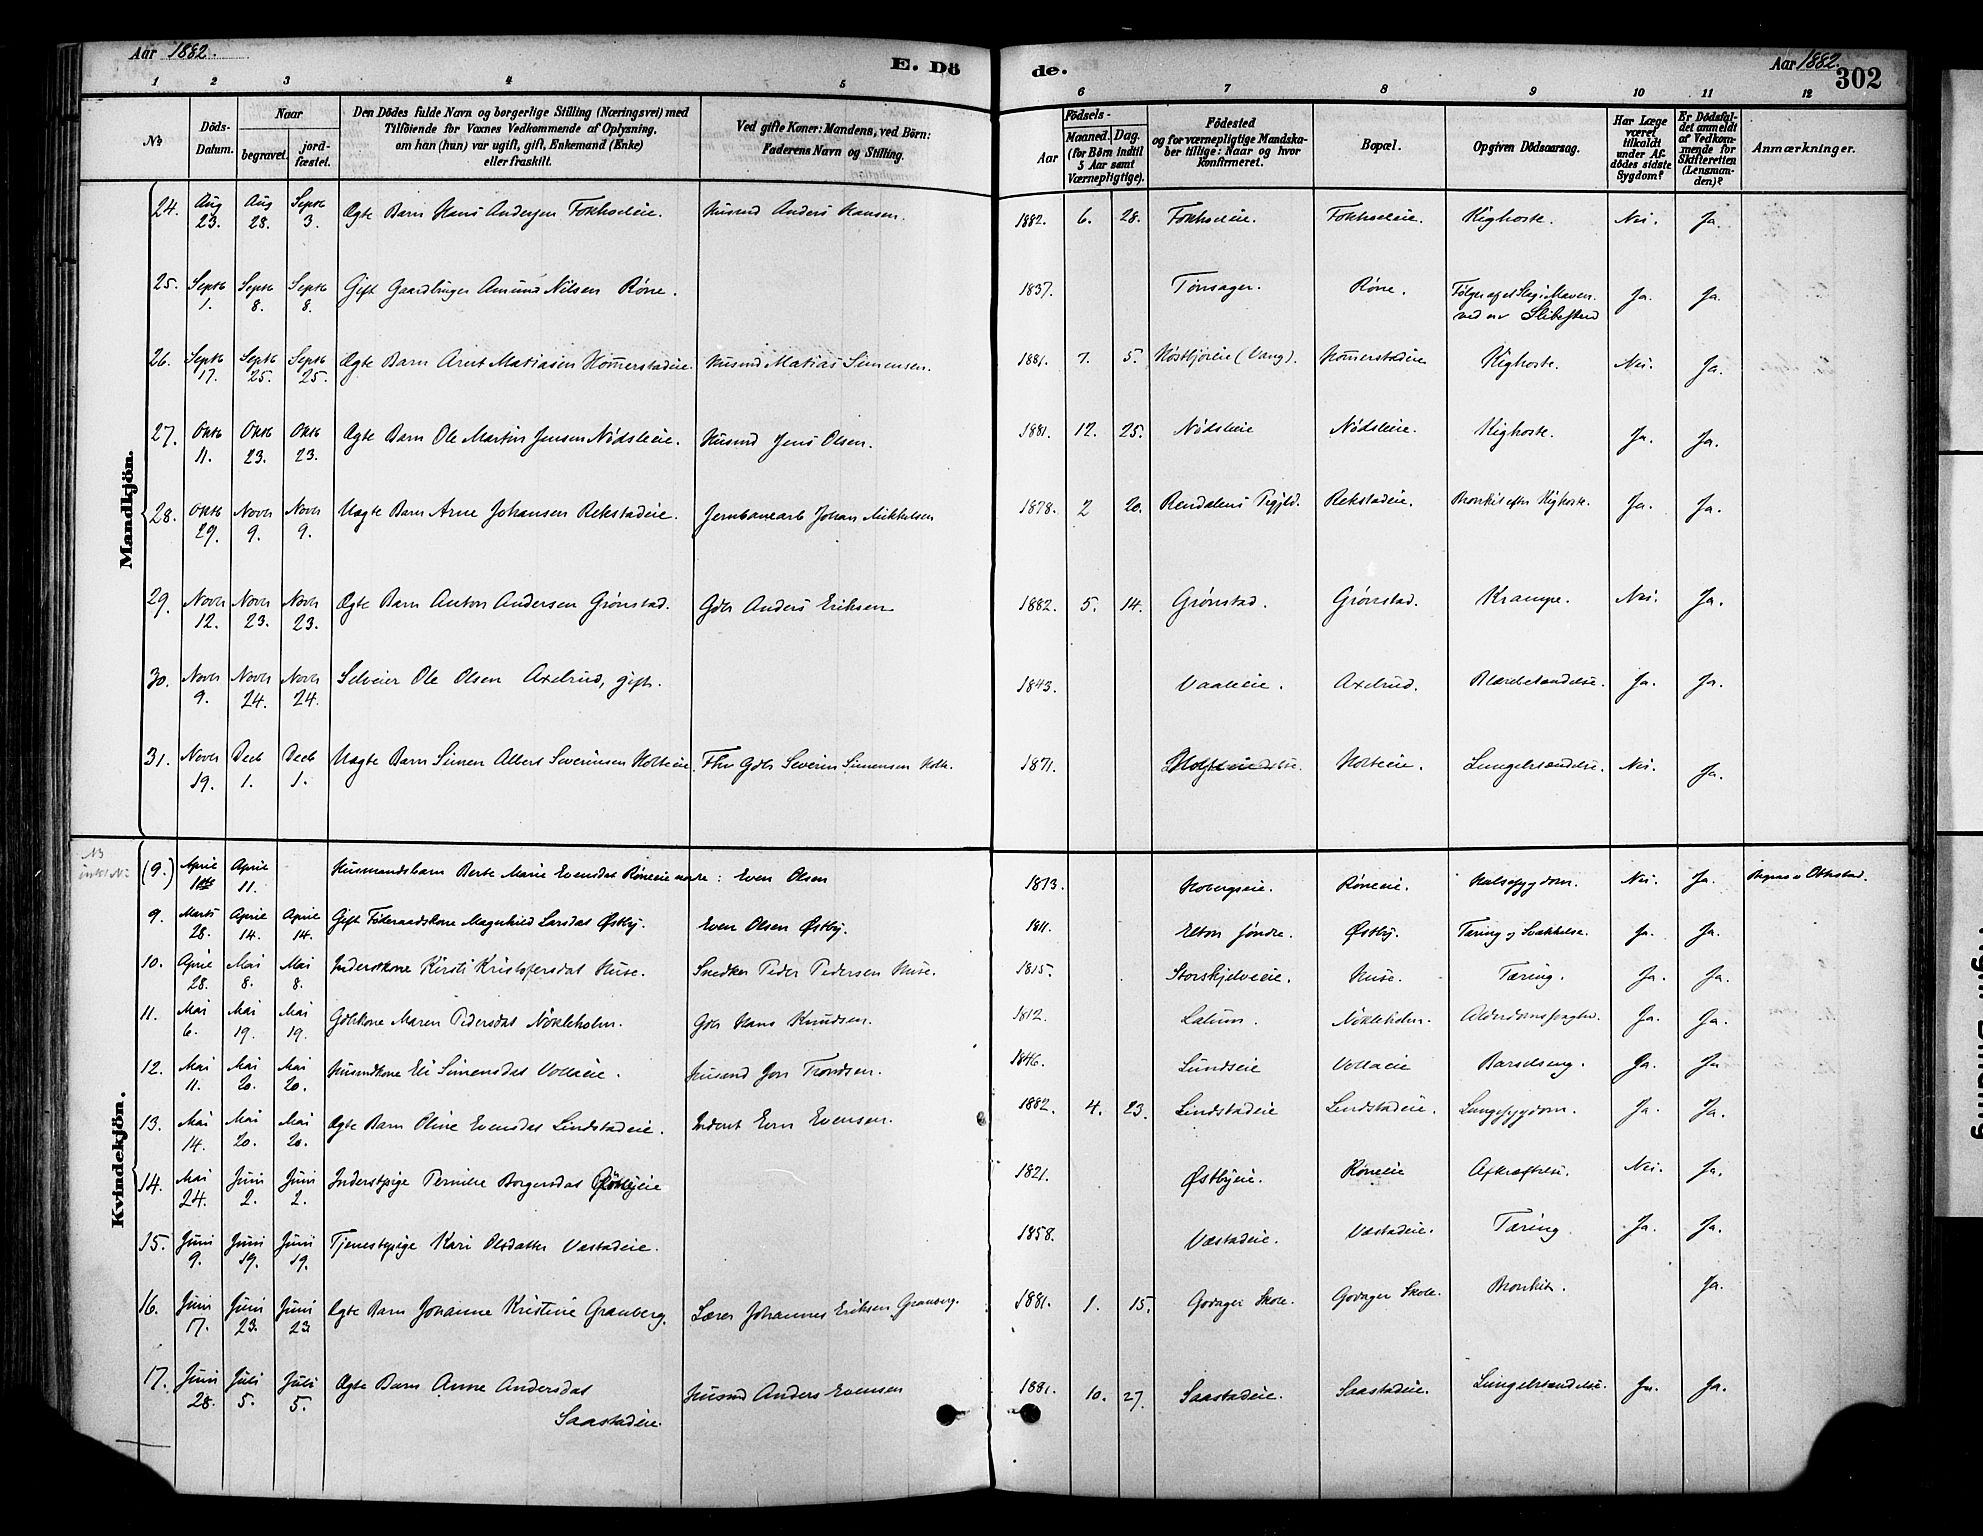 Aar 1882. E. Dö de. Aar 1882. 302
1 2 3 4 5 6 7 8 9 10 11 12
No Döds-Datum. Naar begravet. jordfæstet. Den Dödes fulde Navn og borgerlige Stilling (Næringsvei) med Tilföiende for Voxnes Vedkommende af Oplysning, om han (hun) var ugift, gift, Enkemand (Enke) eller fraskilt. Ved gifte Koner: Mandens, ved Börn: Faderens Navn og Stilling. Födsels- Aar Maaned. Dag. (for Börn indtil 5 Aar samt Værnepligtige). Födested og for værnepligtige Mandskaber tillige: Naar og hvor konfirmeret. Bopæl. Opgiven Dödsaarsag. Har Læge været tilkaldt under Afdödes sidste Sygdom? Er Dödsfaldet anmeldt af Vedkommende for Skifteretten (Lensmanden)? Anmærkninger.
Mandkjön.
24. Aug 23. Aug 28. Septb 3. Ægte Barn Hans Andersen Fokhoeleie. Husmd Anders Hansen. 1882. 6. 28. Fokhoeleie. Fokhoeleie. Kighoste. Nei. Ja.
25. Septb 1. Septb 8. Septb 8. Gift Gaardbruger Amund Nilsen Røne. 1837. Tønsager. Røne. Følger af et Slag i Maven ved en Ja. Ja.
26. Septb 17. Septb 25. Septb 25. Ægte Barn Arnt Matiasen Hommerstadeie. Husmd Matias Simensen. 1881. 7. 5. Høstbjøreie (Vang). Hommerstadeie Kighoste. Nei. Ja.
27. Oktb 11. Oktb 23. Oktb 23. Ægte Barn Ole Martin Jensen Nødsleeie. Husmd Jens Olsen. 1881. 12. 25. Nødsleeie Nødsleeie. Kighoste. Ja. Ja.
28. Oktb 29. Novbr 9. Novbr 9. Uægte Barn Arne Johansen Rekstadeie. Jernbanearb Johan Mikkelsen 1878. 2 20. Rendalens Rekstadeie. Bronkit efter Kighoste. Ja. Ja.
29. Novbr 12. Novbr 23. Novbr 23. Ægte Barn Anton Andersen Grønstad. Gdbr Anders Eriksen 1882. 5. 14. Grønstad. Grønstad. Krampe. Nei. Ja.
30. Novbr 9. Novbr 24. Novbr 24. Selveier Ole Olsen Axelrud, gift. 1843. Vaaleeie. Axelrud. Blærebetændelse. Ja. Ja.
31. Novbr 19. Decb 1. Decb 1. Uægte Barn Simen Albert Severinsen Holteeie. Fhv Gdbr Severin Simensen Holte. 1871. Holteeie. Lungebetændelse. Nei. Ja.
Kvindekjön.
(9.) April April 11. Husmandsbarn Berte Marie Evensdat Røneeie nordre: Even Olsen 1873. Kobergseie. Røneeie. Halssygdom. Nei. Ja. Begrav. v Ottestad.
9. Marts 28. April 14. April 14. Gift Føderaadskone Magnhild Larsdat Østby. Even Olsen Østby. 1811. Elton søndre. Østby. Tæring og Svækkelse. Ja. Ja.
10. April 28. Mai 8. Mai 8. Inderstkone Kirsti Kristofersdat Huse. Snedker Peder Pedersen Huse. 1815. Storskjelveeie. Huse. Tæring. Ja. Ja.
11. Mai 6. Mai 19. Mai 19. Gdbkone Maren Pedersdat Nøkleholm. Gdbr Hans Knudsen. 1812. Lalum. Nøkleholm. Alderdomssvaghed. Ja. Ja.
12. Mai 11. Mai 20. Mai 20. Husmdkone Eli Simensdat Vollaeie. Husmd Jon Trondsen. 1846. Lundseie Vollaeie Barselseng. Ja. Ja
13. Mai 14. Mai 20. Mai 20. Ægte Barn Oline Evensdat Lindstadeie. Inderst Even Evensen. 1882. 4. 23. Lindstadeie Lindstadeie. Lungesygdom. Ja. Ja.
14. Mai 24. Juni 2. Juni 2. Inderstpige Pernille Borgersdat 1821. Østbyeie. Røneeie Afkræftelse. Nei. Ja.
15. Juni 9. Juni 19. Juni 19. Tjenestepige Kari Olsdatter Vestadeie. 1858. Vestadeie. Vestadeie. Tæring. Ja. Ja.
16. Juni 17. Juni 23. Juni 23 Ægte Barn Johanne Kristine Granberg. Lærer Johannes Eriksen Granberg. 1881. 1. 15. Godager Skole. Godager Skole. Bronkit. Ja.
17. Juni 28. Juli 5. Juli 5. Ægte Barn Anne Andersdat Saastadeie. Husmd Anders Evensen 1881. 10. 27. Saastadeie. Saastadeie. Lungebetændelse. Ja. Ja.